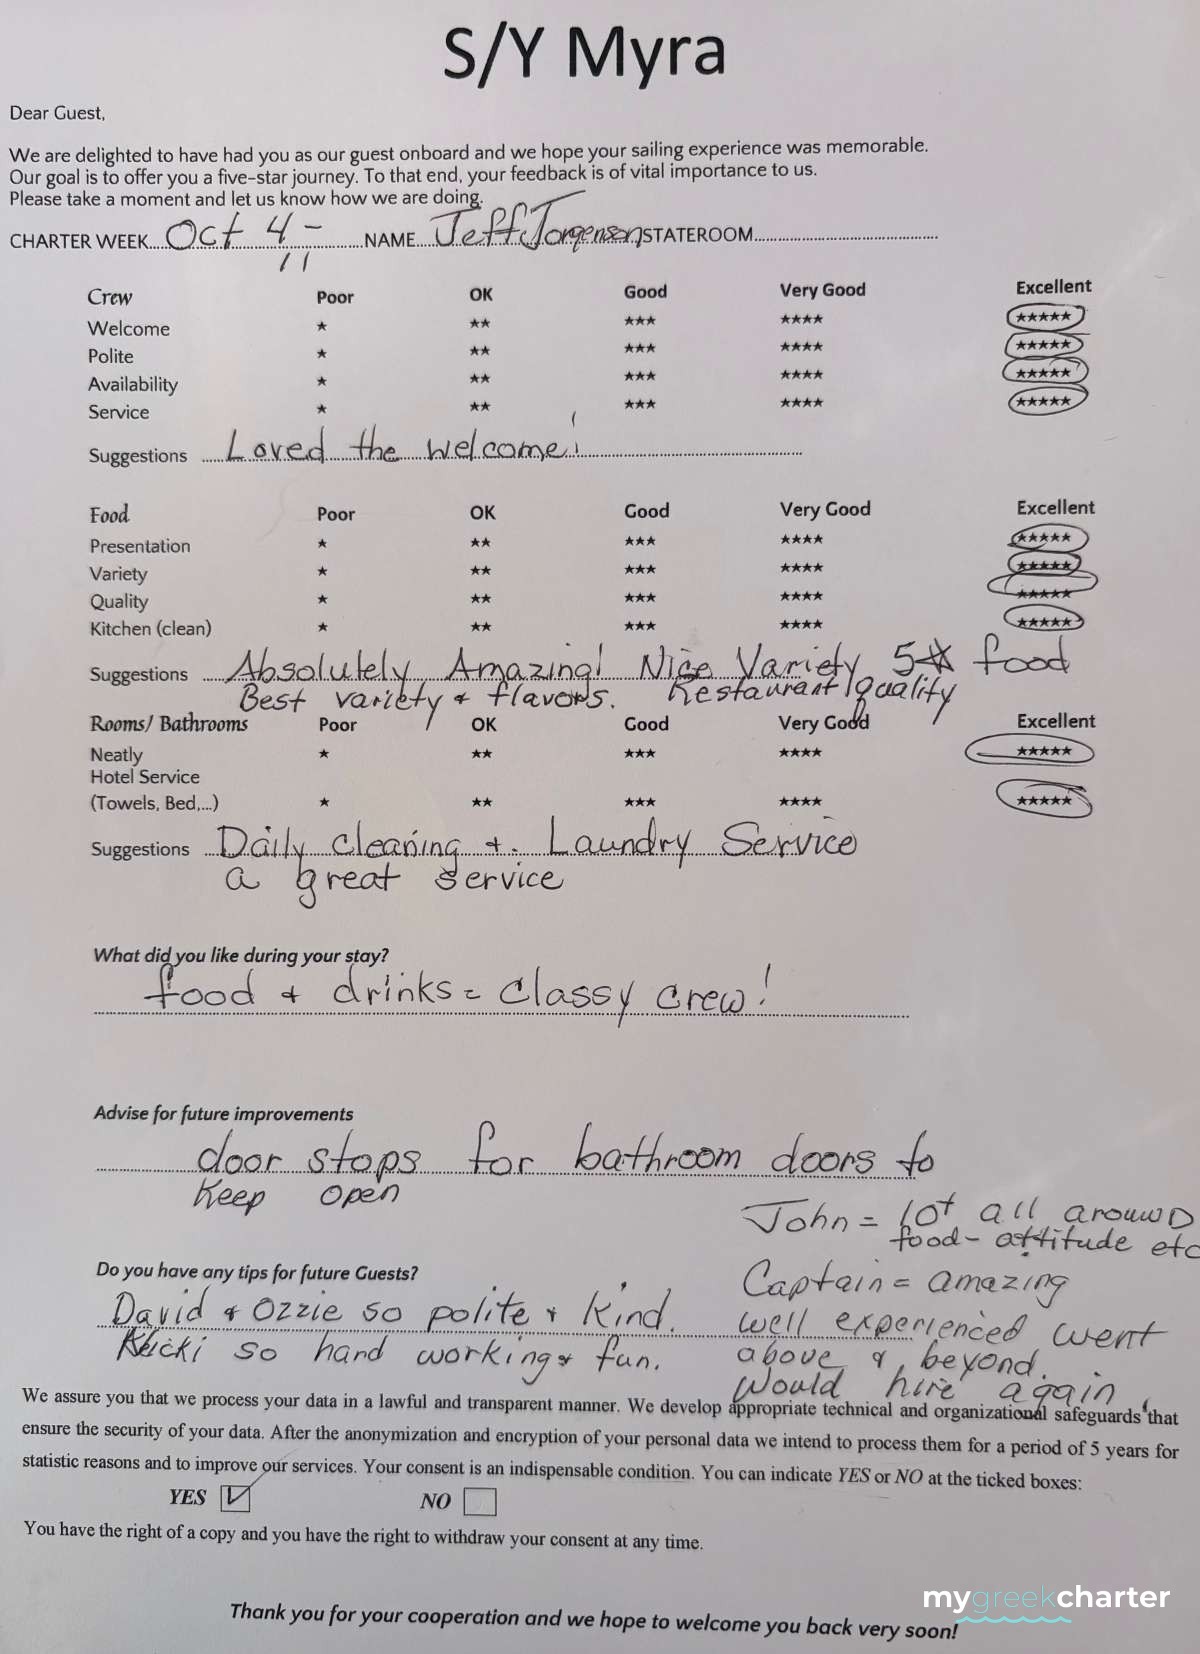 S/Y Myra
Dear Guest,
We are delighted to have had you as our guest onboard and we hope your sailing experience was memorable.
Our goal is to offer you a five-star journey. To that end, your feedback is of vital importance to us.
Please take a moment and let us know how we are doing.
CHARTER WEEK...Oct 4 - 11...NAME...Jeff Jorgensen STATEROOM...
Crew Poor OK Good Very Good Excellent
Welcome ★ ★★ ★★★ ★★★★ ★★★★★
Polite ★ ★★ ★★★ ★★★★ ★★★★★
Availability ★ ★★ ★★★ ★★★★ ★★★★★
Service ★ ★★ ★★★ ★★★★ ★★★★★
Suggestions ...Loved the welcome!...
Food Poor OK Good Very Good Excellent
Presentation ★ ★★ ★★★ ★★★★ ★★★★★
Variety ★ ★★ ★★★ ★★★★ ★★★★★
Quality ★ ★★ ★★★ ★★★★ ★★★★★
Kitchen (clean) ★ ★★ ★★★ ★★★★ ★★★★★
Suggestions ...Absolutely Amazing! Nice Variety 5★ food
Best variety & flavors. Restaurant quality
Rooms/ Bathrooms Poor OK Good Very Good Excellent
Neatly ★ ★★ ★★★ ★★★★ ★★★★★
Hotel Service
(Towels, Bed,...) ★ ★★ ★★★ ★★★★ ★★★★★
Suggestions ...Daily cleaning &. Laundry Service
a great service
What did you like during your stay?
food & drinks = classy crew!
Advise for future improvements
door stops for bathroom doors to
keep open
John = 10+ all around
food - attitude etc
Do you have any tips for future Guests?
David & Ozzie so polite & kind.
so hard working & fun.
Captain = amazing
well experienced went
above & beyond.
Would hire again.
We assure you that we process your data in a lawful and transparent manner. We develop appropriate technical and organizational safeguards that
ensure the security of your data. After the anonymization and encryption of your personal data we intend to process them for a period of 5 years for
statistic reasons and to improve our services. Your consent is an indispensable condition. You can indicate YES or NO at the ticked boxes:
YES ☑ NO ☐
You have the right of a copy and you have the right to withdraw your consent at any time.
mygreekcharter
Thank you for your cooperation and we hope to welcome you back very soon!